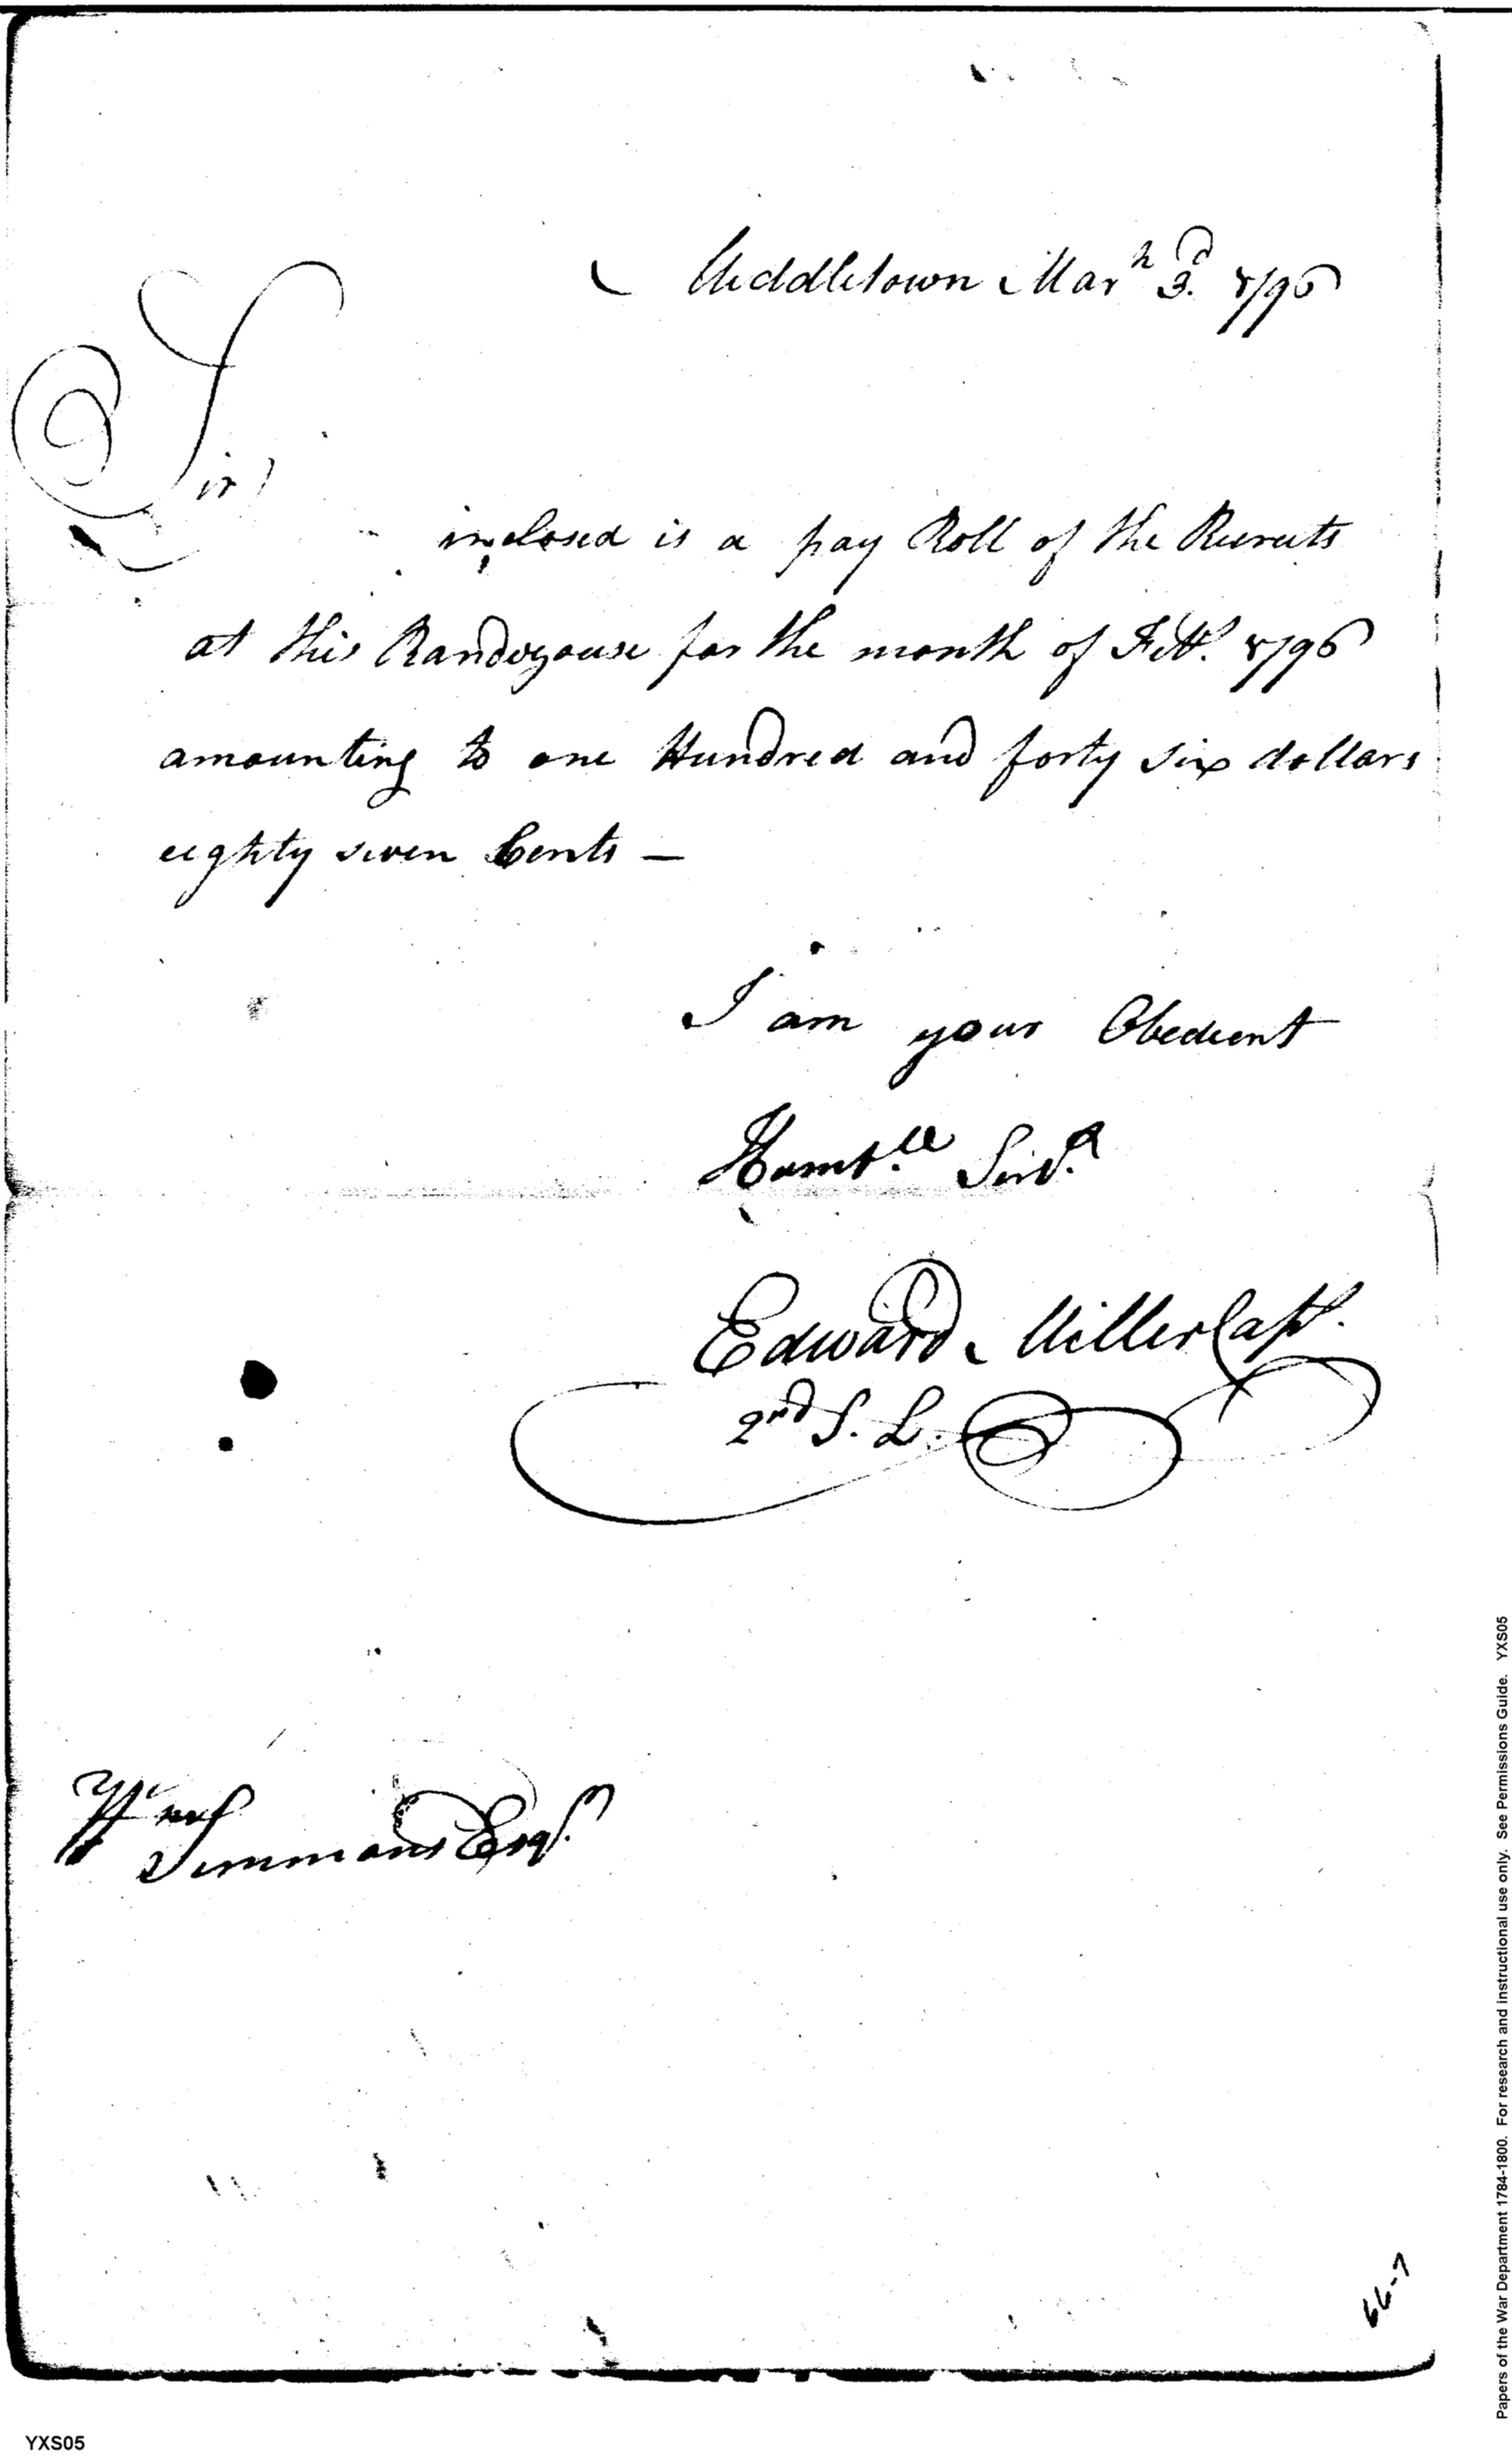 Middletown Mar^h 3^d. 1796
Sir)
inclosed is a pay Roll of the Recruits
at this Randevouse for the month of Feb^y. 1796
amounting to one Hundred and forty six dollars
eighty seven Cents —
I am your Obedient
Humb^le Serv^t.
Edward Miller Capt.
2nd S. L.
Simmons Esq^r.
66-7
YXS05
Papers of the War Department 1784-1800. For research and instructional use only. See Permissions Guide. YXS05